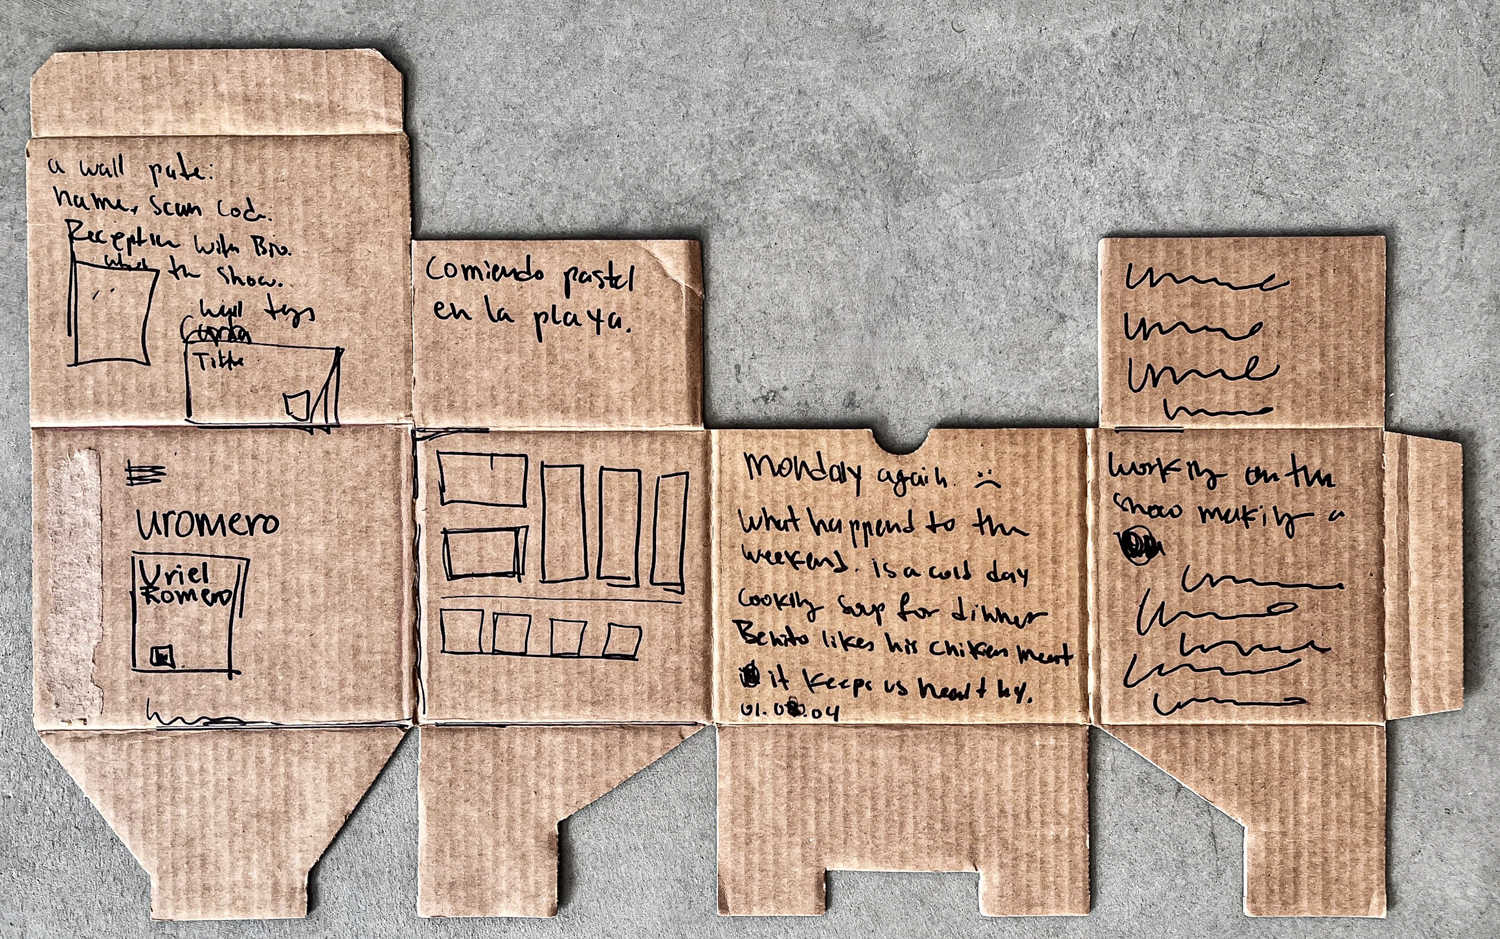 a wall pate:
name, Scan Code.
Reception with Bio.
the Show.
Wall tags
Title
Comiendo pastel
en la playa.
uromero
Uriel
Romero
Monday again. :(
what happend to the
weekend. is a cold day
cooking soup for dinner
Benito likes his chiken meat
it keeps us healthy.
working on the
show making a